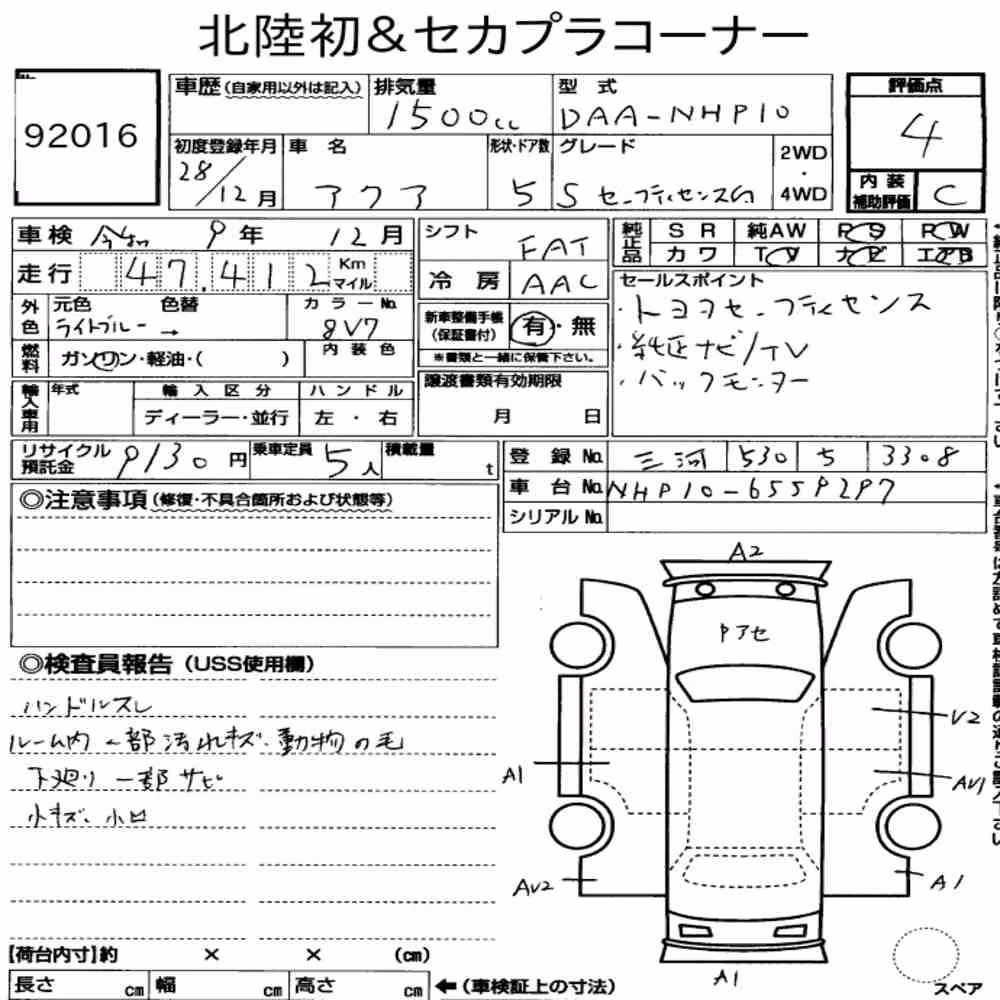 北陸初&セカプラコーナー
92016
車歴(自家用以外は記入) 排気量 型式
1500cc DAA-NHP10
初度登録年月 車名 形状・ドア数 グレード 2WD・4WD
28/12月 アクア 5 Sセーフティセンス
評価点
4
内装補助評価 C
車検 9年 12月
走行 47,412 Km マイル
外色 元色 色替 カラーNo.
ライトブルー → 8V7
燃料 ガソリン・軽油・( ) 内装色
輸入車用 年式 輸入区分 ハンドル
ディーラー・並行 左・右
シフト FAT
冷房 AAC
新車整備手帳(保証書付) 有・無
※書類と一緒に保管下さい。
譲渡書類有効期限
月 日
純正品 SR 純AW PS PW
カワ TV ナビ エアB
セールスポイント
・トヨタセーフティセンス
・純正ナビ/TV
・バックモニター
リサイクル預託金 9130円 乗車定員 5人 積載量 t
登録No. 三河 530 ち 3308
車台No. NHP10-6559297
シリアルNo.
◎注意事項(修復・不具合箇所および状態等)
◎検査員報告(USS使用欄)
ハンドルスレ
ルーム内一部汚れキズ・動物の毛
下廻り一部サビ
小キズ、小凹
A2
Pアセ
V2
A1
AV1
AV2
A1
A1
スペア
【荷台内寸】約 × × (cm)
長さ cm 幅 cm 高さ cm ←(車検証上の寸法)